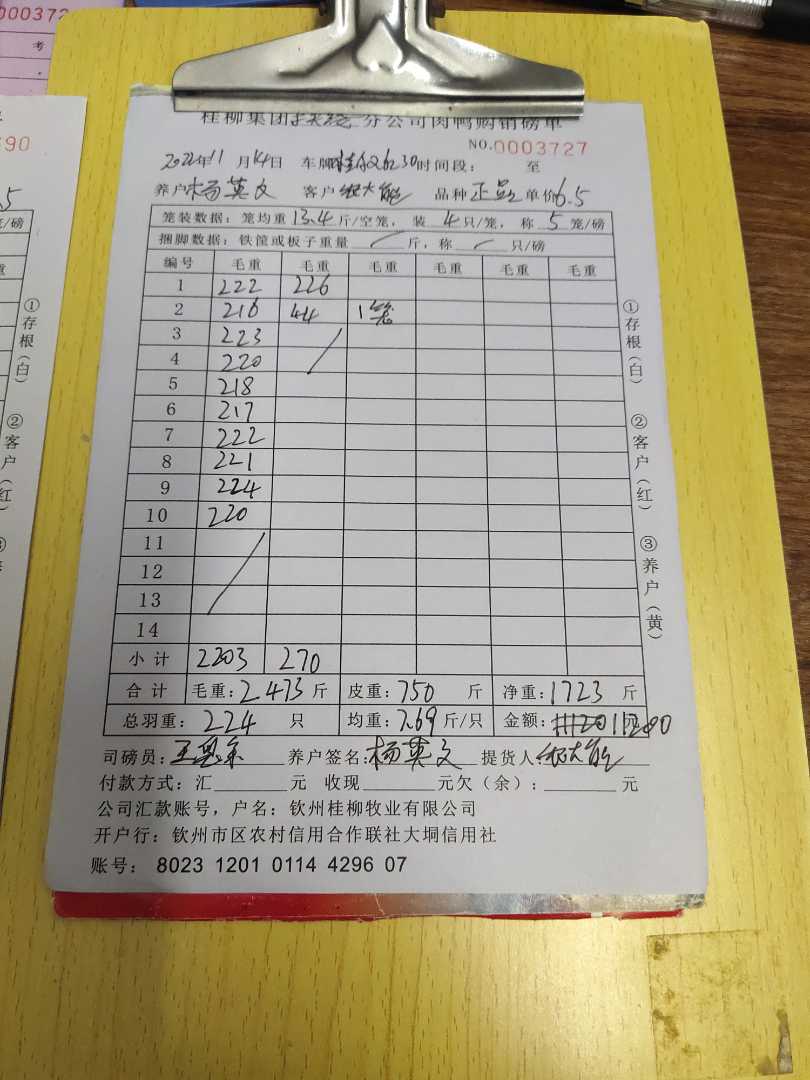 000372
考
桂柳集团 分公司肉鸭购销磅单
NO.0003727
2022年11月14日 车牌 6230时间段： 至
养户杨英文 客户 大能 品种 正 单价6.5
笼装数据：笼均重13.4斤/空笼，装4只/笼，称5笼/磅
捆脚数据：铁筐或板子重量／斤，称／只/磅
编号 毛重 毛重 毛重 毛重 毛重 毛重
1 222 226
2 216 44 1笼
3 223
4 220
5 218
6 217
7 222
8 221
9 224
10 220
11
12
13
14
小计 2203 270
合计 毛重：2473斤 皮重：750斤 净重：1723斤
总羽重：224只 均重：7.69斤/只 金额：11200
司磅员：王 养户签名：杨英文 提货人 大能
付款方式：汇 元 收现 元欠（余）： 元
公司汇款账号，户名：钦州桂柳牧业有限公司
开户行：钦州市区农村信用合作联社大垌信用社
账号：8023 1201 0114 4296 07
①存根（白）
②客户（红）
③养户（黄）
90
5
笼/磅
①存根（白）
②客户（红）